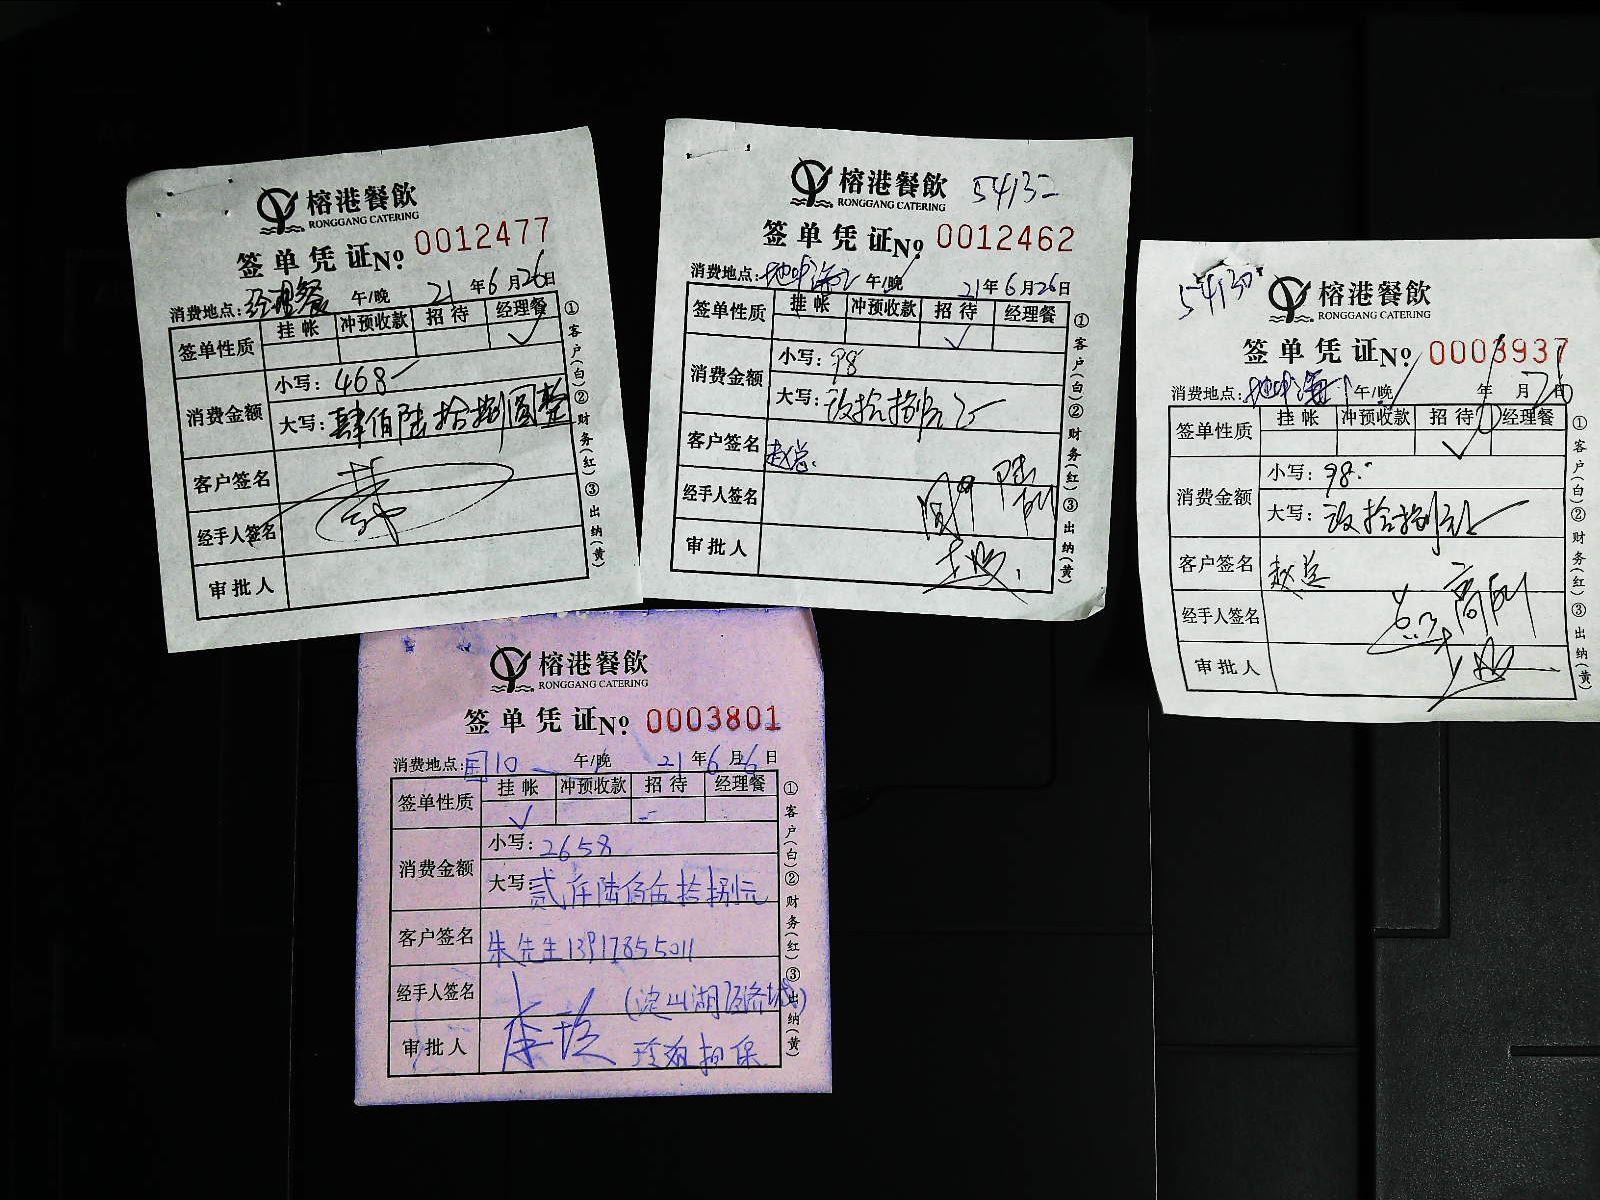 榕港餐飲
RONGGANG CATERING
签单凭证No. 0012477
消费地点:经理餐 午/晚 21年6月26日
签单性质 挂帐 冲预收款 招待 经理餐
✓
消费金额 小写:468-
大写:肆佰陆拾捌圆整
客户签名
经手人签名
审批人
①客户(白)②财务(红)③出纳(黄)
榕港餐飲 54132
RONGGANG CATERING
签单凭证No. 0012462
消费地点:地中海 午/晚 21年6月26日
签单性质 挂帐 冲预收款 招待 经理餐
✓
消费金额 小写:98
大写:玖拾捌元
客户签名 赵总.
经手人签名
审批人
①客户(白)②财务(红)③出纳(黄)
54130
榕港餐飲
RONGGANG CATERING
签单凭证No. 0003937
消费地点:地中海 午/晚 年 月 日
签单性质 挂帐 冲预收款 招待 经理餐
✓
消费金额 小写:98.
大写:玖拾捌元
客户签名 赵总
经手人签名
审批人
①客户(白)②财务(红)③出纳(黄)
榕港餐飲
RONGGANG CATERING
签单凭证No. 0003801
消费地点:国10 午/晚 21年6月6日
签单性质 挂帐 冲预收款 招待 经理餐
✓
消费金额 小写:2658
大写:贰仟陆佰伍拾捌元
客户签名 朱先生13917855011
经手人签名 (淀山湖
审批人 担保
①客户(白)②财务(红)③出纳(黄)